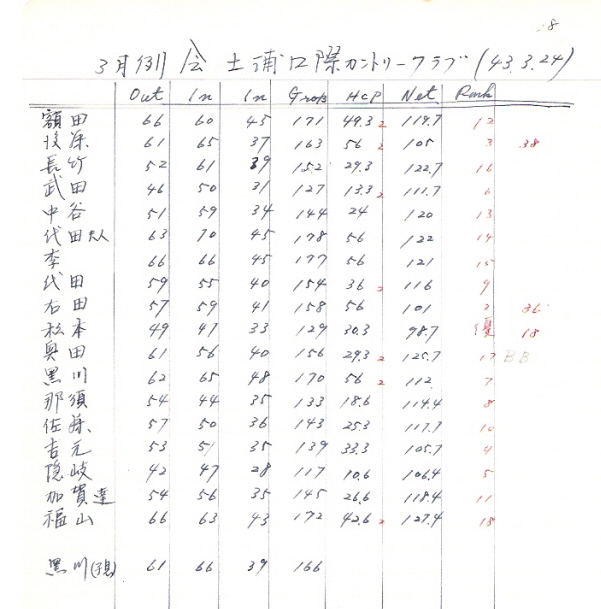 28
3月例会 土浦国際カントリークラブ (43.3.24)
Out In In Gross HcP Net. Rank
額田 66 60 45 171 49.3 2 119.7 12
後藤 61 65 37 163 56 2 105 3 38
長竹 52 61 39 152 29.3 122.7 16
武田 46 50 31 127 13.3 2 111.7 6
中谷 51 59 34 144 24 120 13
代田夫人 63 70 45 178 56 122 14
李 66 66 45 177 56 121 15
代田 59 55 40 154 36 2 116 9
右田 57 59 41 158 56 101 2 36
松本 49 47 33 129 30.3 98.7 優 18
奥田 61 56 40 156 29.3 2 125.7 17 BB
黒川 62 65 48 170 56 2 112 7
那須 54 44 35 133 18.6 114.4 8
佐藤 57 50 36 143 25.3 117.7 10
吉元 53 51 35 139 33.3 105.7 4
隠岐 42 47 28 117 10.6 106.4 5
加賀達 54 56 35 145 26.6 118.4 11
福山 66 63 43 172 42.6 2 127.4 18
黒川(子息) 61 66 39 166